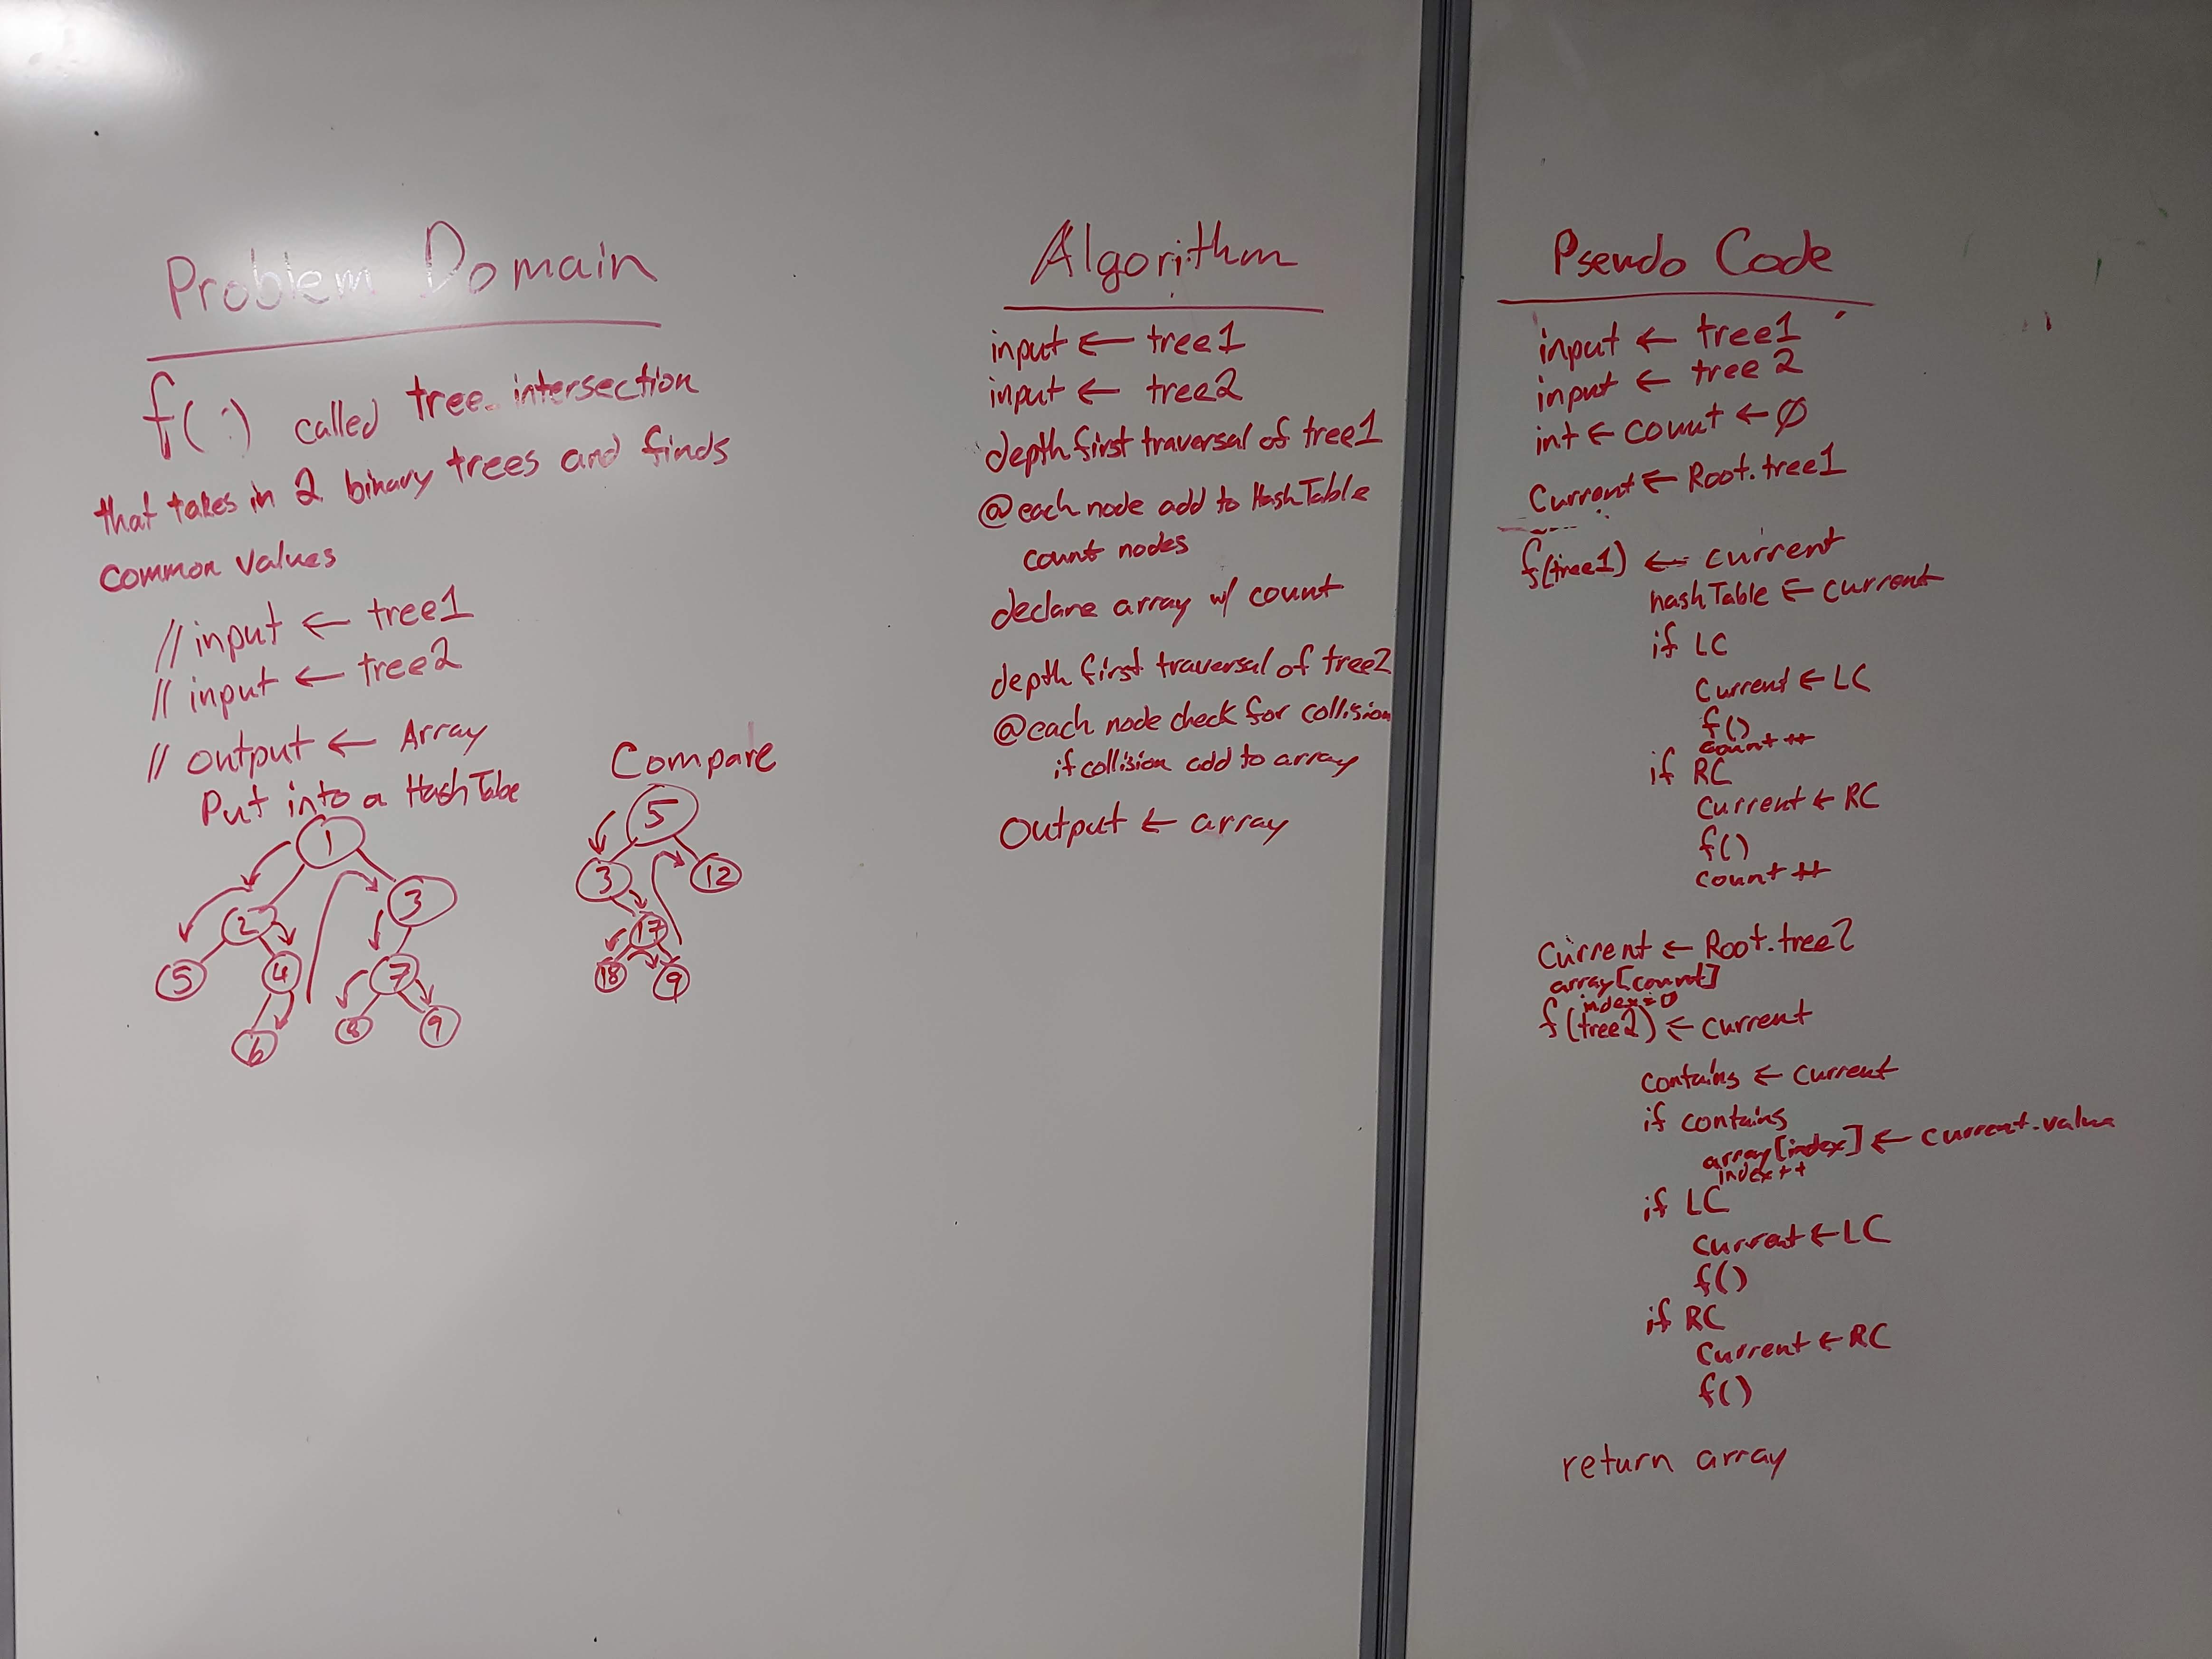 Problem Domain
f( ) called tree intersection
that takes in 2 binary trees and finds
common values
// input ← tree1
// input ← tree2
// output ← Array
Put into a HashTabe
1
2
3
5
4
7
6
8
9
Compare
5
3
12
17
18
9
Algorithm
input ← tree1
input ← tree2
depth first traversal of tree1
@each node add to HashTable
count nodes
declare array w/ count
depth first traversal of tree2
@each node check for collision
if collision add to array
Output ← array
Pseudo Code
input ← tree1
input ← tree2
int ← count ← Ø
Current ← Root.tree1
f(tree1) ← current
hashTable ← current
if LC
Current ← LC
f()
count ++
if RC
Current ← RC
f()
count ++
Current ← Root.tree2
array[count]
index = 0
f(tree2) ← current
contains ← current
if contains
array[index] ← current.value
index++
if LC
Current ← LC
f()
if RC
Current ← RC
f()
return array